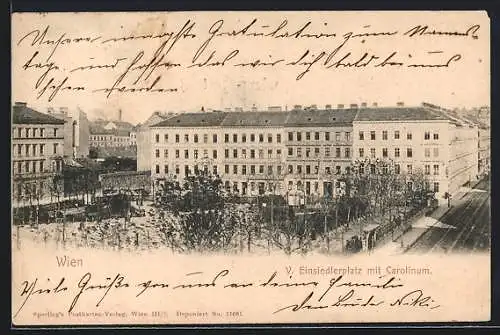 Unsere innigste Gratulation zum Namens
tage und hoffen das wir dich bald bei uns
sehen werden
Wien
V. Einsiedlerplatz mit Carolinum.
Viele Grüße von uns an deine Familie
dein Bruder Niki
Sperling's Postkarten-Verlag, Wien III/2. Deponiert No.